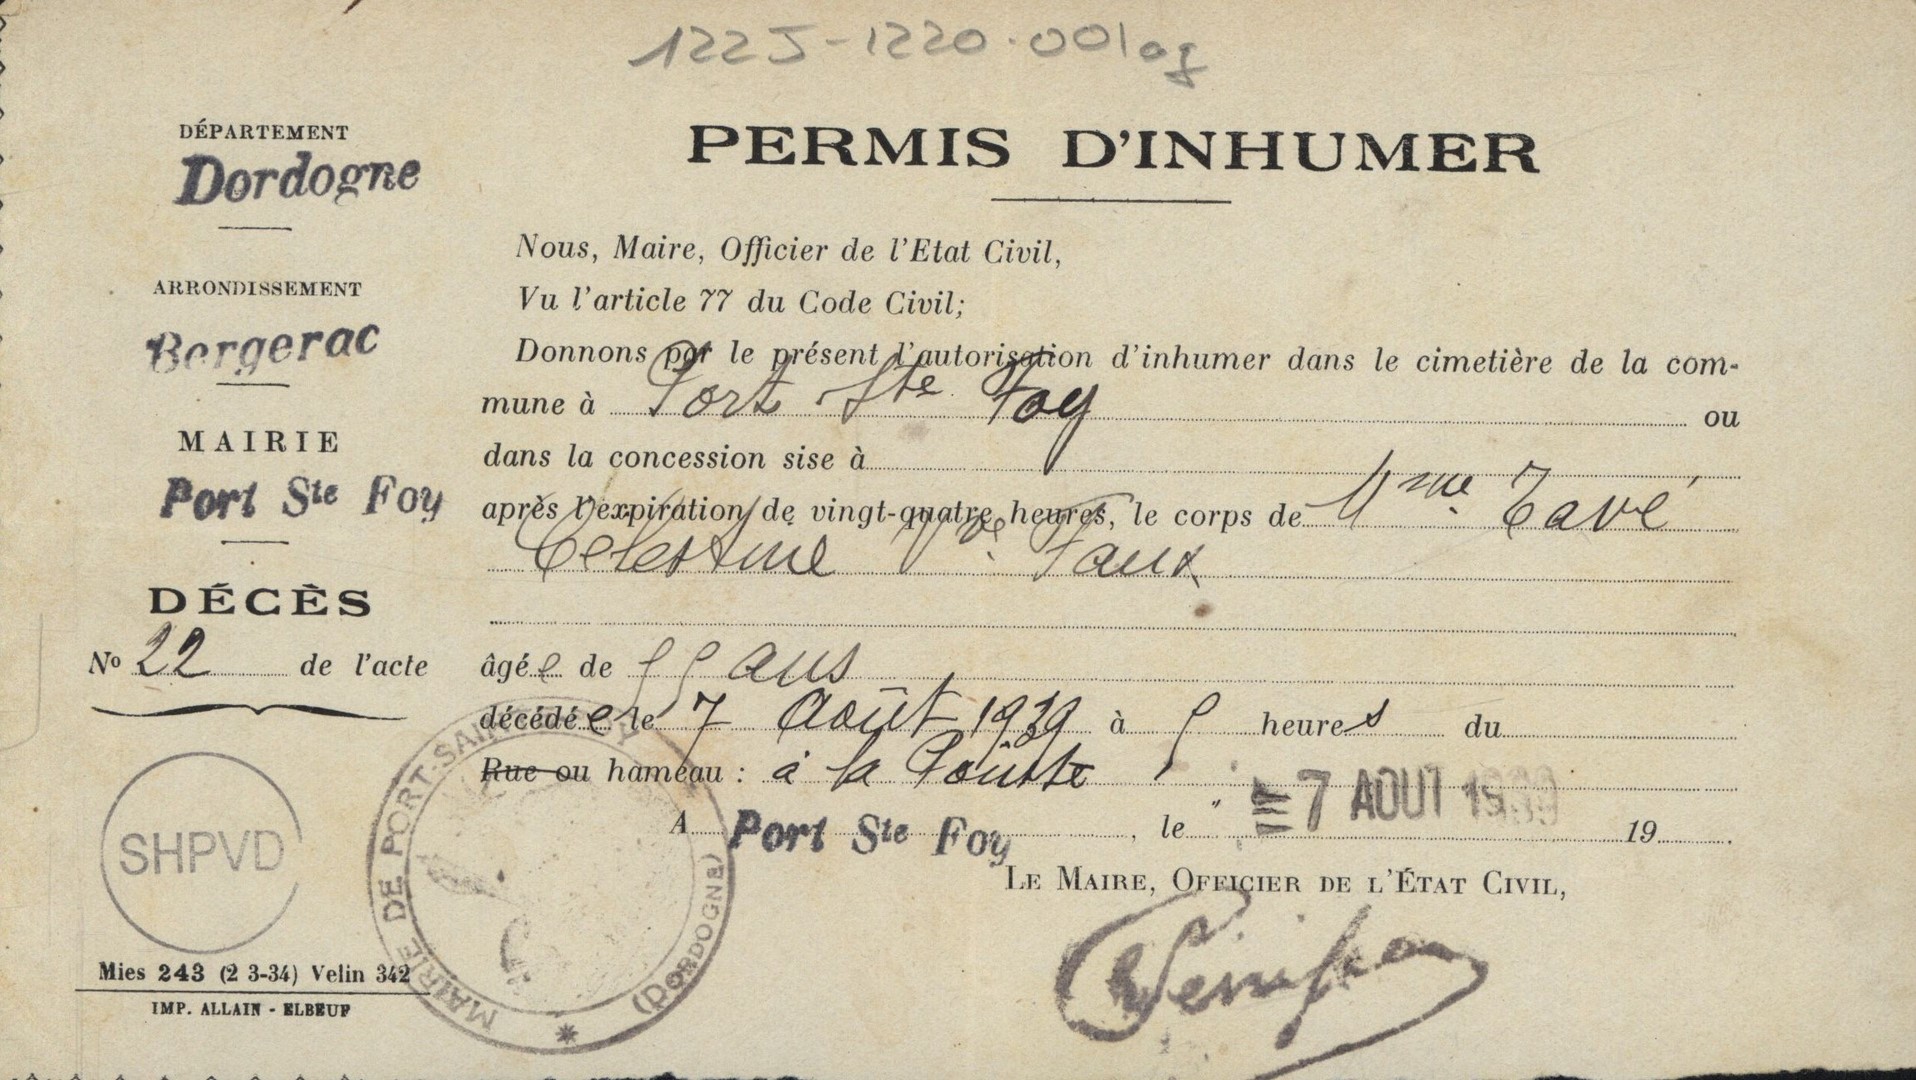 122J-1220.001
PERMIS D'INHUMER
DÉPARTEMENT
Dordogne
ARRONDISSEMENT
Bergerac
MAIRIE
Port Ste Foy
DÉCÈS
No 22 de l'acte
Nous, Maire, Officier de l'Etat Civil,
Vu l'article 77 du Code Civil;
Donnons par le présent l'autorisation d'inhumer dans le cimetière de la com-
mune à Port Ste Foy ou
dans la concession sise à
après l'expiration de vingt-quatre heures, le corps de Mme Tavé
Célestine Vve Faux
âgée de ans
décédée le 7 Août 1939 à heures du
Rue ou hameau : à la
A Port Ste Foy, le 7 AOUT 1939 19
LE MAIRE, OFFICIER DE L'ÉTAT CIVIL,
MAIRIE DE PORT-SAINTE (DORDOGNE)
SHPVD
Mies 243 (2 3-34) Velin 342
IMP. ALLAIN - ELBEUF